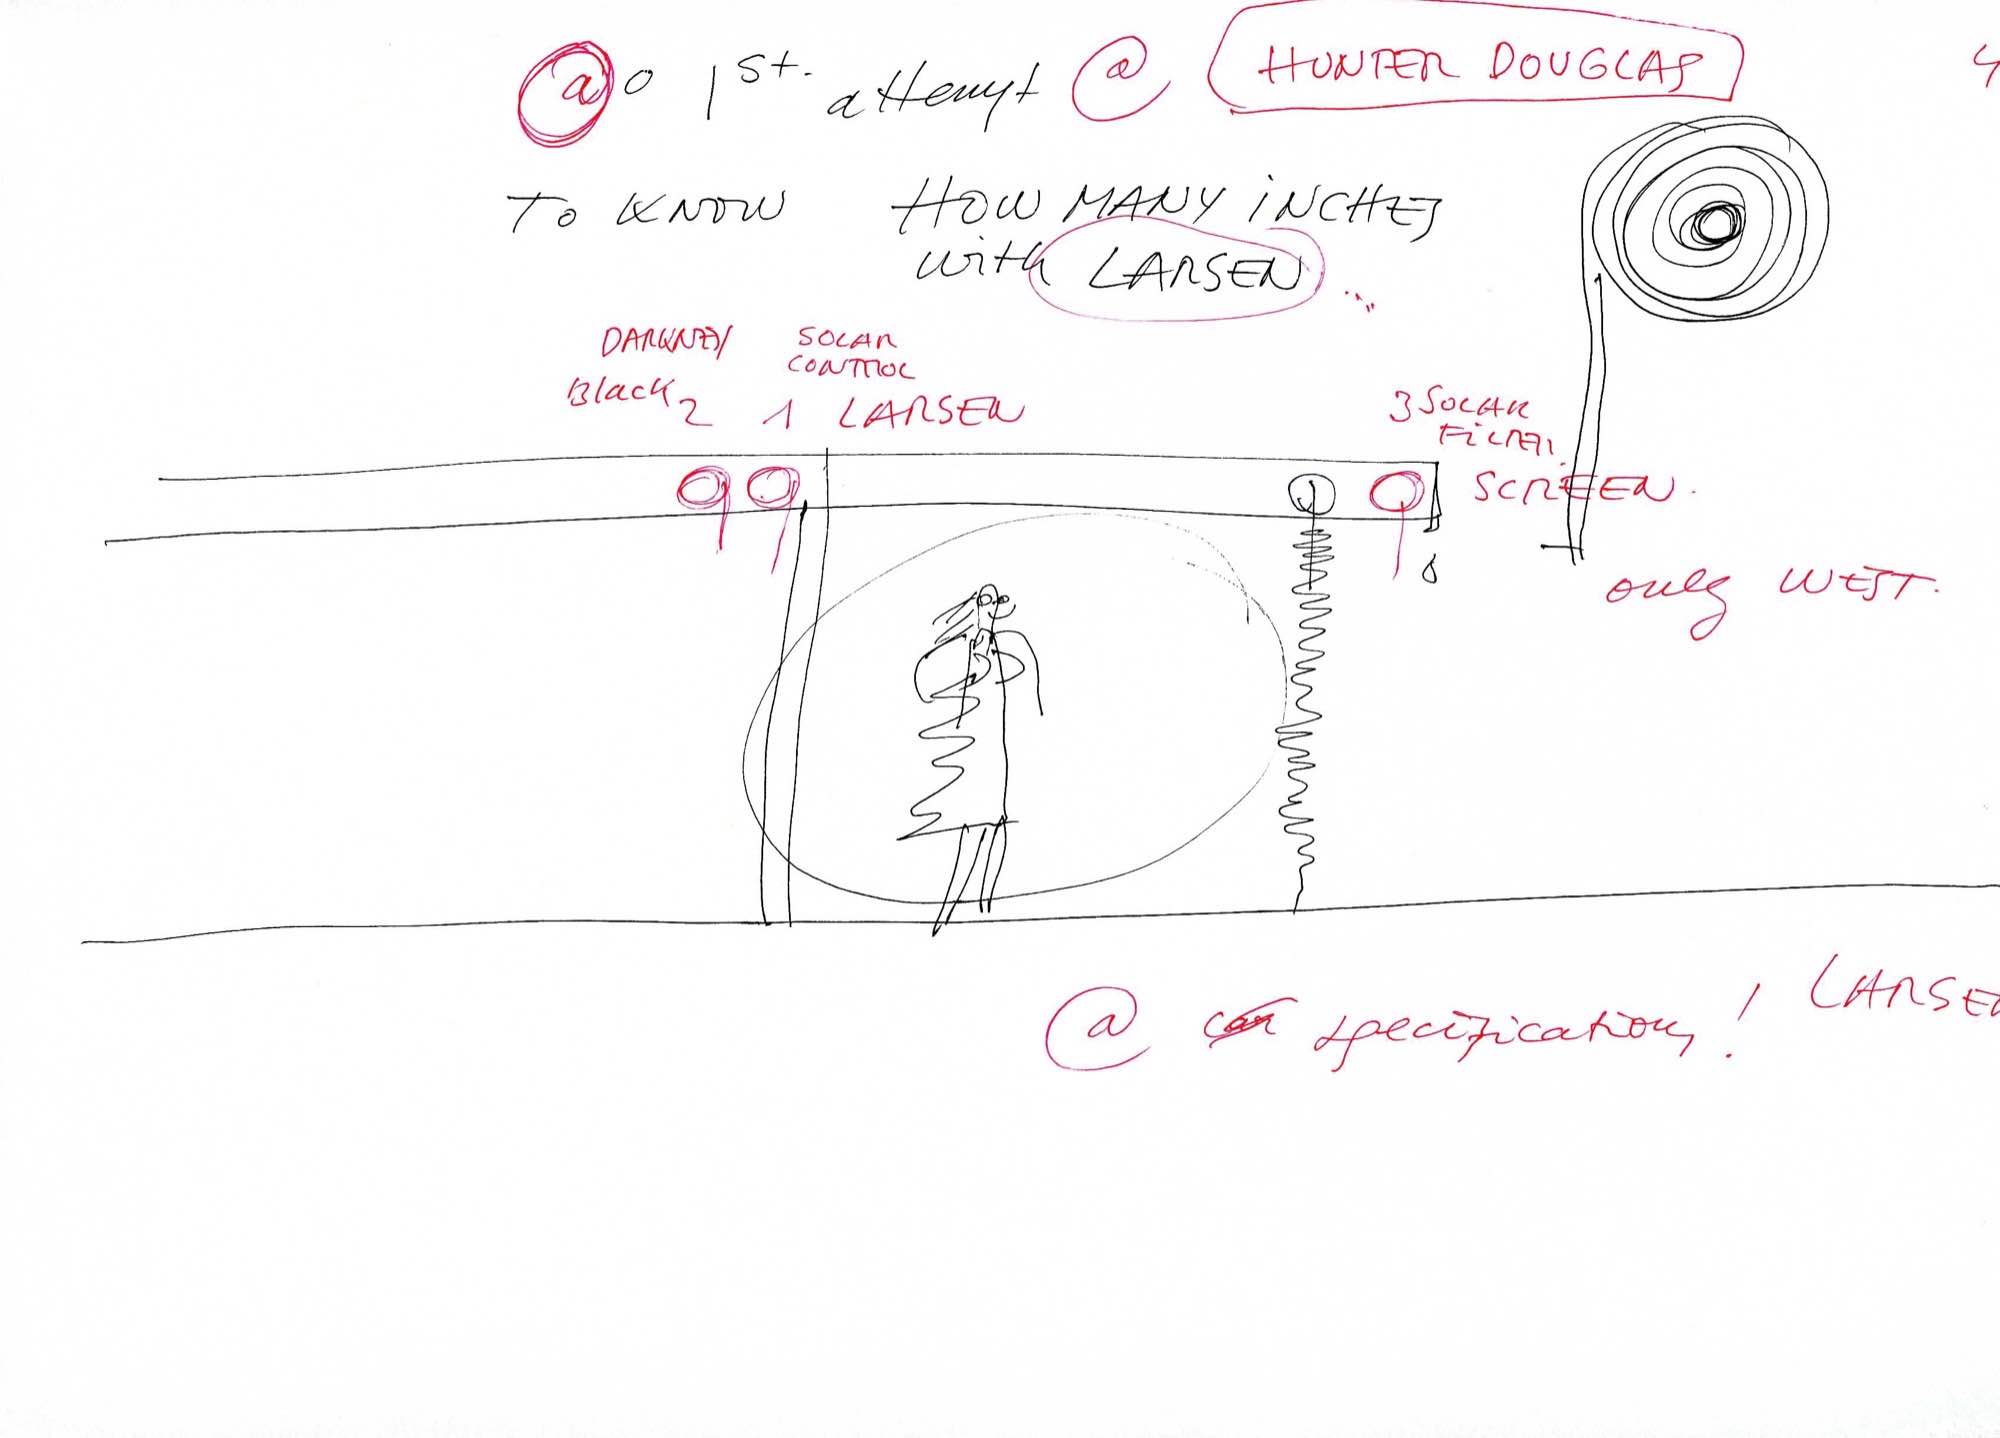 @ o 1st. attempt @ HUNTER DOUGLAS
TO KNOW HOW MANY INCHES
with LARSEN ...
DARKNESS
Black 2
SOLAR
CONTROL
1 LARSEN
3 SOLAR
FILTER
SCREEN.
only WEST.
@ specifications! LARSEN